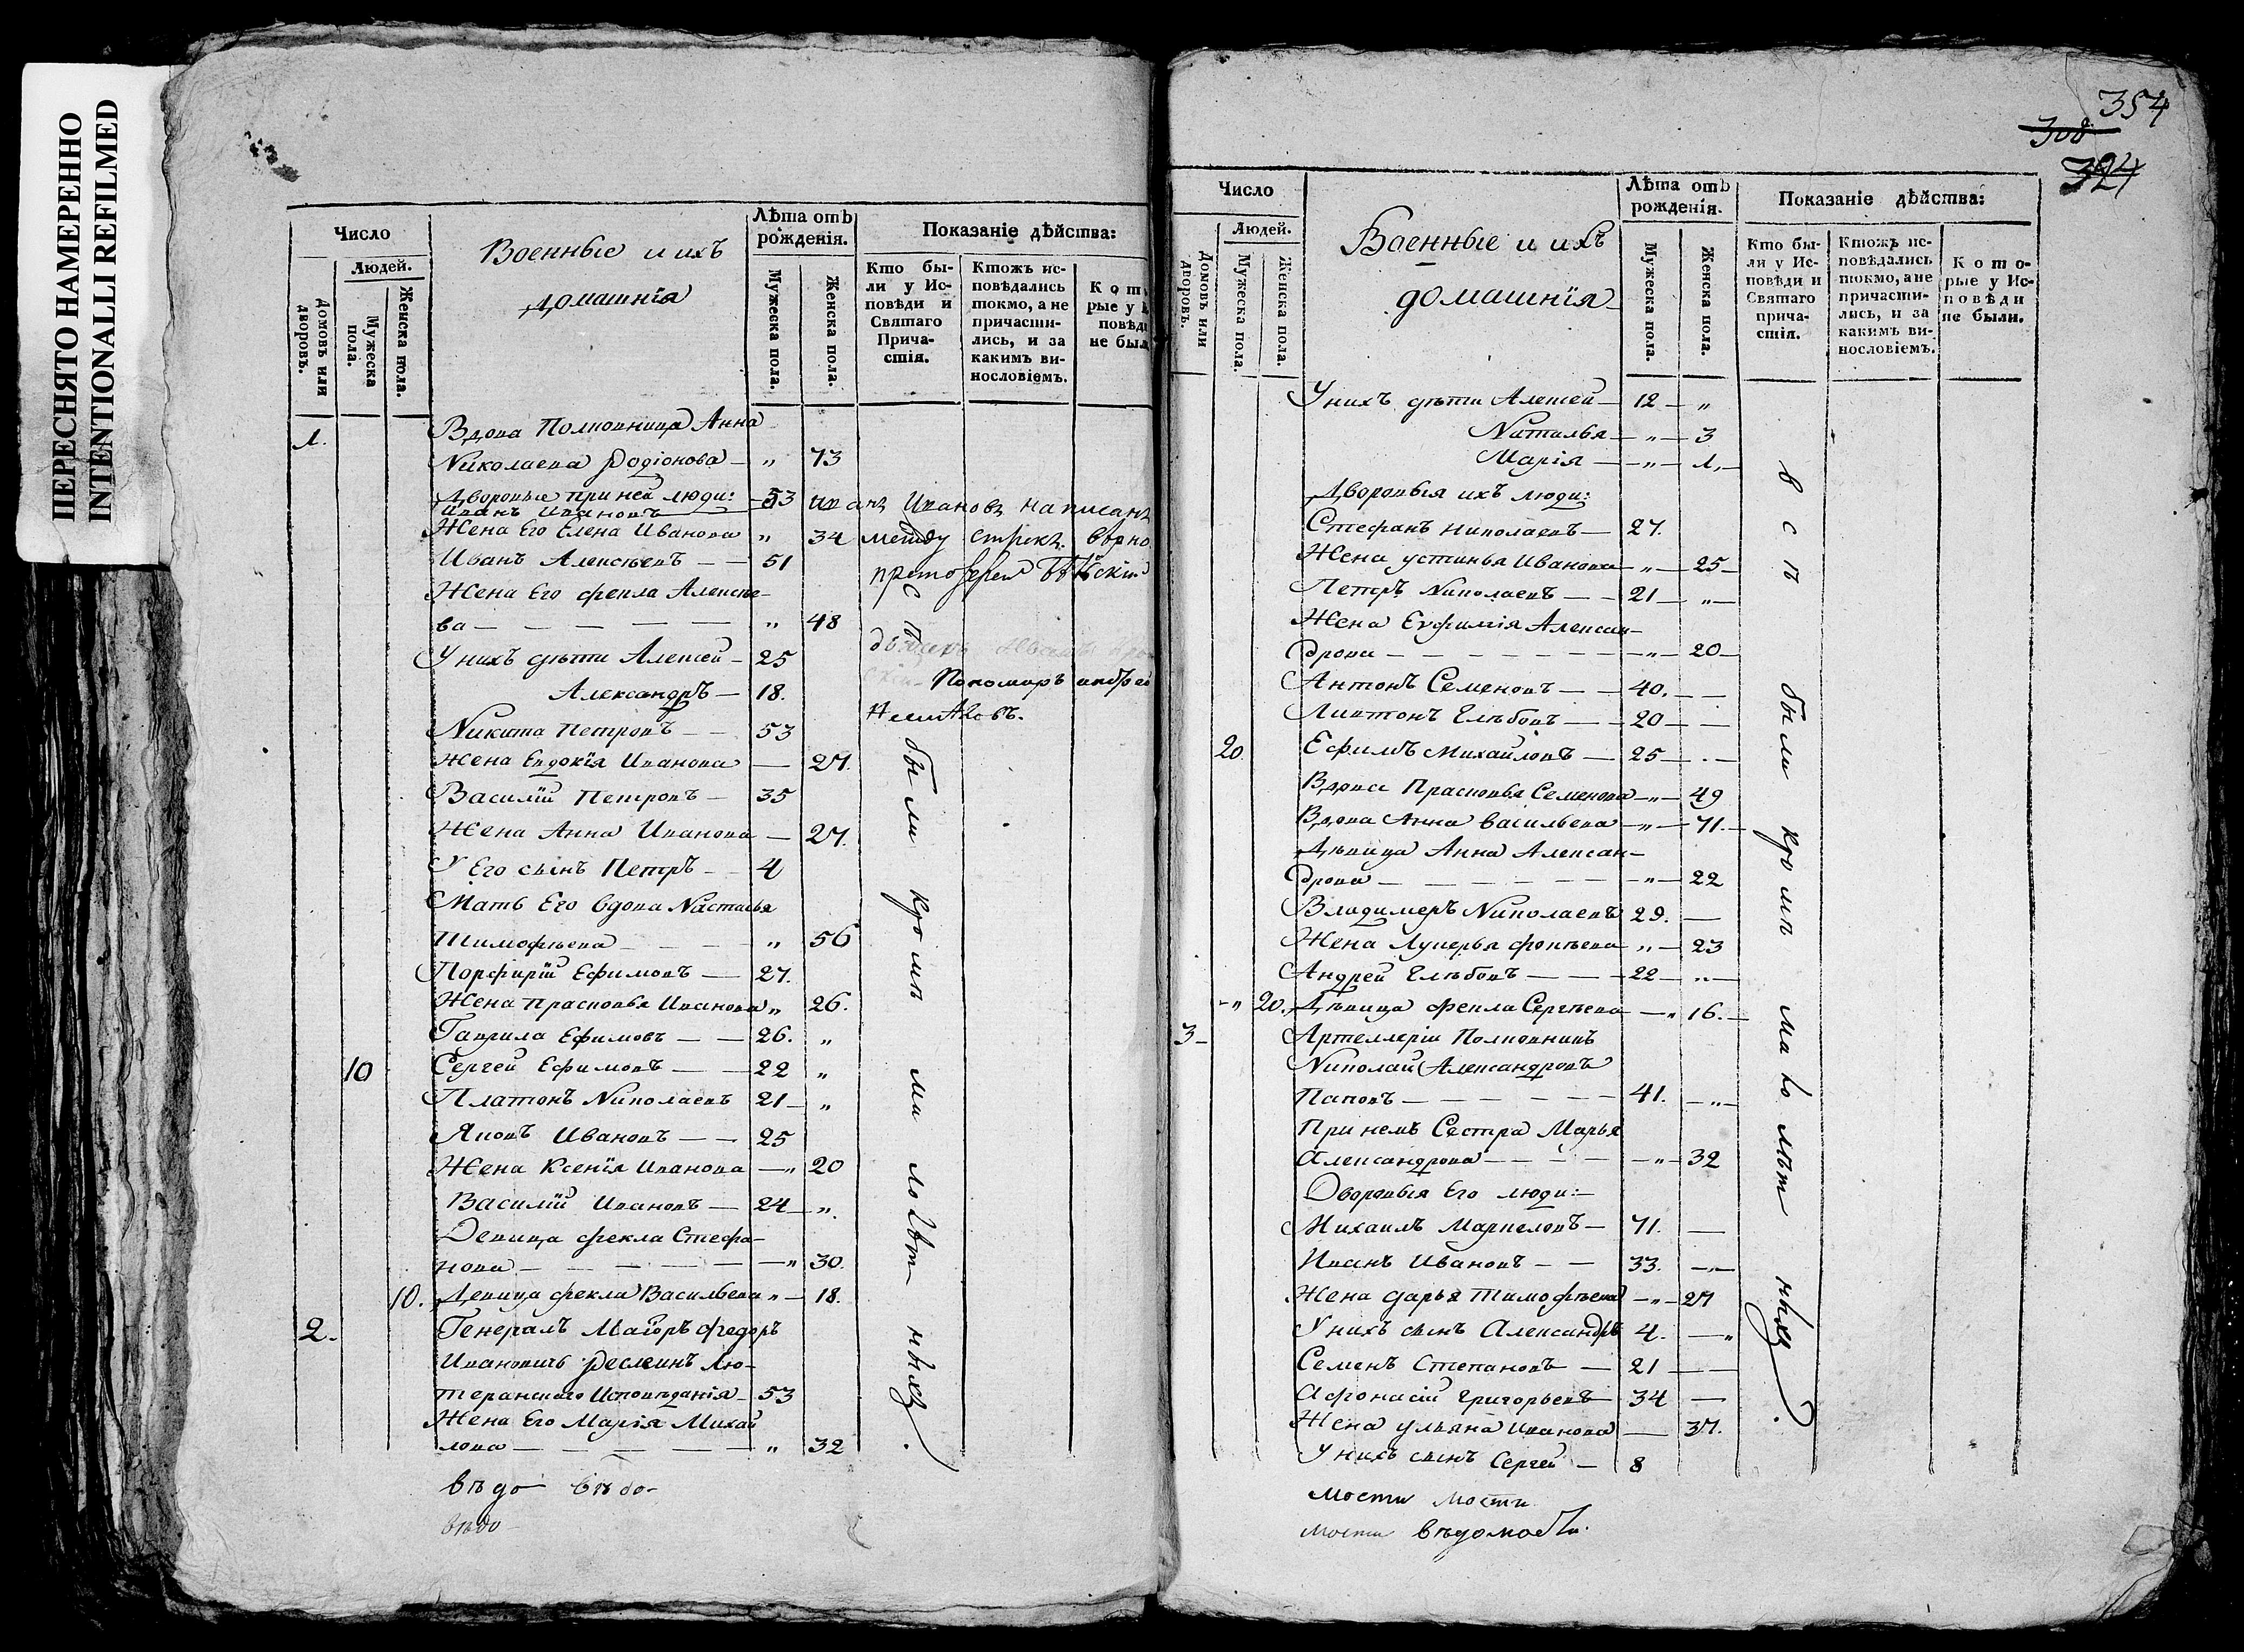 ПЕРЕСНЯТО НАМЕРЕННО
INTENTIONALLI REFILMED
Число
Людей.
Домовъ или дворовъ.
Мужеска пола.
Женска пола.
Военные и ихъ
домашнія
Лѣта отъ рожденія.
Мужеска пола.
Женска пола.
Показаніе дѣйства:
Кто бы-
ли у Ис-
повѣди и
Святаго
Прича-
стія.
Ктожъ ис-
повѣдались
токмо, а не
причасти-
лись, и за
какимъ ви-
нословіемъ.
Кот
рые у
повѣд
не был
1. Вдова Полковница Анна
Николаева Родіонова — " 73
Дворовые при ней люди:
Иванъ Ивановъ — 53 Иванъ Ивановъ написанъ
Жена Его Елена Иванова " 34 между строкъ. вѣрно
Иванъ Алексѣевъ — — 51
Жена Его Фекла Алексѣе-
ва — — — — — " 48
У нихъ дѣти Алексей — 25
Александръ — 18. Пономарь Андрей
Никита Петровъ — — 53
Жена Евдокія Иванова — 27.
Василій Петровъ — 35
Жена Анна Иванова — 27.
У Его сынъ Петръ — 4
Мать Его вдова Настасья
Тимофѣева — — — " 56
Порфирій Ефимовъ — 27.
Жена Прасковья Иванова " 26.
Гаврила Ефимовъ — — 26. "
10 Сергей Ефимовъ — — 22 "
Платонъ Николаевъ 21 — "
Яковъ Ивановъ — — 25
Жена Ксенія Иванова — " 20
Василій Ивановъ — 24 — "
Девица Фекла Стефа-
нова — — — — — " 30.
10. Девица Фекла Васильева " — 18.
2. Генералъ Маіоръ Федоръ
Ивановичъ Реслеинъ Лю-
теранскаго Исповѣданія — 53
Жена Его Марія Михай
лова — — — — — " 32
всѣ были кромѣ малолѣтныхъ.
вѣдо вѣдо-
вѣдо-
354
308
324
Число
Людей.
Домовъ или дворовъ.
Мужеска пола.
Женска пола.
Военные и ихъ
домашнія
Лѣта отъ
рожденія.
Мужеска пола.
Женска пола.
Показаніе дѣйства:
Кто бы-
ли у Ис-
повѣди и
Святаго
прича-
стія.
Ктожъ ис-
повѣдались
токмо, а не
причасти-
лись, и за
какимъ ви-
нословіемъ.
Кото-
рые у Ис-
повѣди
не были.
У нихъ дѣти Алексей — 12 — "
Наталья — " — 3
Марія — " — 1. —
Дворовыя ихъ люди:
Стефанъ Николаевъ — 27.
Жена Устинья Иванова — " — 25 —
Петръ Николаевъ — — 21 — " —
Жена Евфимія Алексан-
дрова — — — — — " — 20 —
Антонъ Семеновъ — — 40. — —
Платонъ Глѣбовъ — — 20 — —
20. Ефимъ Михайловъ — 25 — —
Вдова Прасковья Семенова — " — 49
Вдова Анна Васильева — " — 71. —
Дѣвица Анна Алексан-
дрова — — — — — " — 22
Владимеръ Николаевъ 29. —
Жена Лукерья Фокѣева — " — 23
Андрей Глѣбовъ — — — 22 — " —
— " 20. Дѣвица Фекла Сергѣева — " 16. —
3 — Артеллеріи Полковникъ
Николай Александровъ
Паповъ — — — — — 41. — " —
При немъ Сестра Марья
Александрова — — — — " — 32
Дворовыя Его люди: —
Михаилъ Маркеловъ — 71. —
Иванъ Ивановъ — — 33. — " —
Жена Дарья Тимофѣева — " — 27
У нихъ сынъ Александръ 4. — "
Семенъ Степановъ — 21 —
Афонасій Григорьевъ — 34 —
Жена Ульяна Иванова — 37.
У нихъ сынъ Сергей — 8
всѣ были кромѣ малолѣтныхъ.
мости мости
мости вѣдомости.